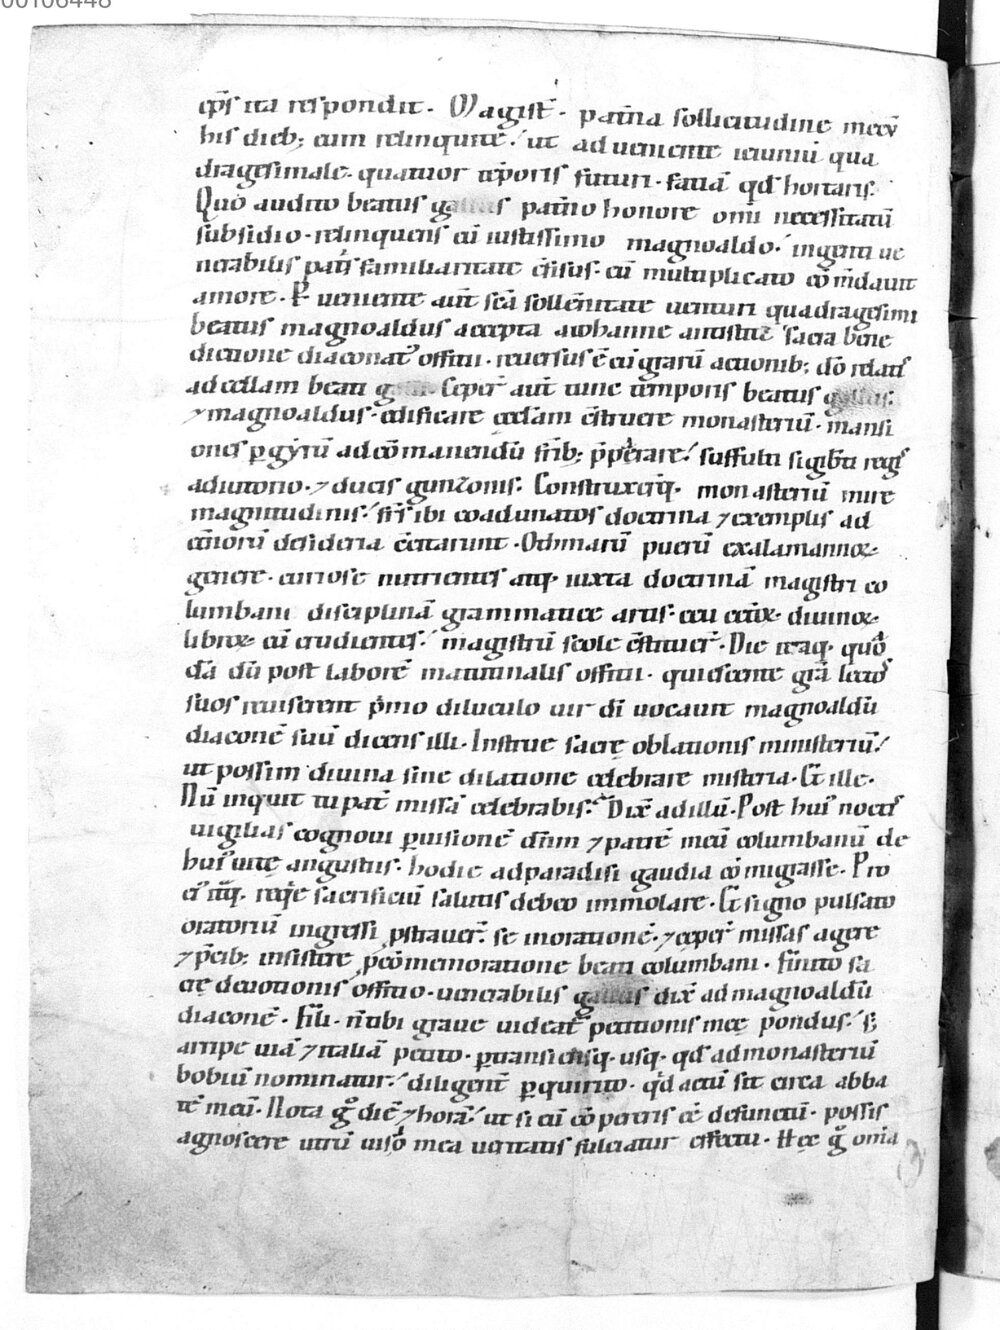 00106448
ep̄s ita respondit. Magist̄. pat̄na sollicitudine mecū
his dieb; eum relinquite! ut adueniente ieiuniū qua
dragesimale. quatuor tēporis futuri. faciā qd̄ hortaris.
Quo audito beatus gallus pat̄no honore omī necessitatū
subsidio. relinquens cū iustissimo magnoaldo! ingenti ue
nerabilis pat̄s familiaritate c̄fisus. eū multiplicato cōm̄dauit
amore. P ueniente aut̄ sc̄a sollēnitate uenturi quadragesimi
beatus magnoaldus accepta aiohanne antistite sacra bene
dictione diaconat᾽ offitii. reuersus ē cū grarū actionib; dō relatis
ad cellam beati galli. Ceper̄ aut̄ tunc temporis beatus gallus.
⁊ magnoaldus. edificare ecclam c̄struere monasteriū. mansi
ones p gyrū ad cōmanendū frīb; p̄parare! suffulti sigib̄ti regis
adiutorio. ⁊ ducis gunzonis. Construxer̄q. monasteriū mire
magnitudinis! fr̄s ibi coadunatos doctrina ⁊ exemplis ad
etn̄orū desideria c̄citarunt. Othmarū puerū exalamannoꝝ
genere. curiose nutrientes atq. iuxta doctrinā magistri co
lumbani disciplinā grammatice artis. ceu etiā. diuinoꝝ
libroꝝ eū erudientes! magistrū scole c̄stituer̄. Die itaq. quo
dā dū post laborē matutinalis offitii. quiescente grā lectos
suos reuiserent p̄mo diluculo uir dī uocauit magnoaldū
diaconē suū dicens illi. Instrue sacrę oblationis ministeriū!
ut possim diuina sine dilatione celebrare misteria. Et ille.
Nū inquit tu pat̄ missā celebrabis? Dix̄ ad illū. Post hui᾽ noctis
uigilias cognoui p uisionē dn̄m ⁊ patrē meū columbanū de
hui᾽ uitę angustiis. hodie ad paradisi gaudia cōmigrasse. Pro
ei᾽ itaq. requie sacrificiū salutis debeo immolare. Et signo pulsato
oratoriū ingressi pstrauer̄. se inorationē. ⁊ ceper̄ missas agere
⁊ p̄cib; insistere p cōmemoratione beati columbani. Finito sa
crę deuotionis offitio. uenerabilis gallus dix̄ ad magnoaldū
diaconē. Fili. n̄ tibi graue uideat̄ petitionis meę pondus! s;
arripe uiā ⁊ italiā petito. ptransiensq. usq. qd̄ ad monasteriū
bobiū nominatur! diligent̄ p quirito. qd̄ actū sit circa abba
tē meū. Nota ḡ diē ⁊ horā! ut si eū cōpereris ee defunctū. possis
agnoscere utrū uisio mea ueritatis fulciatur effectu. Hęc ḡ om̄ia